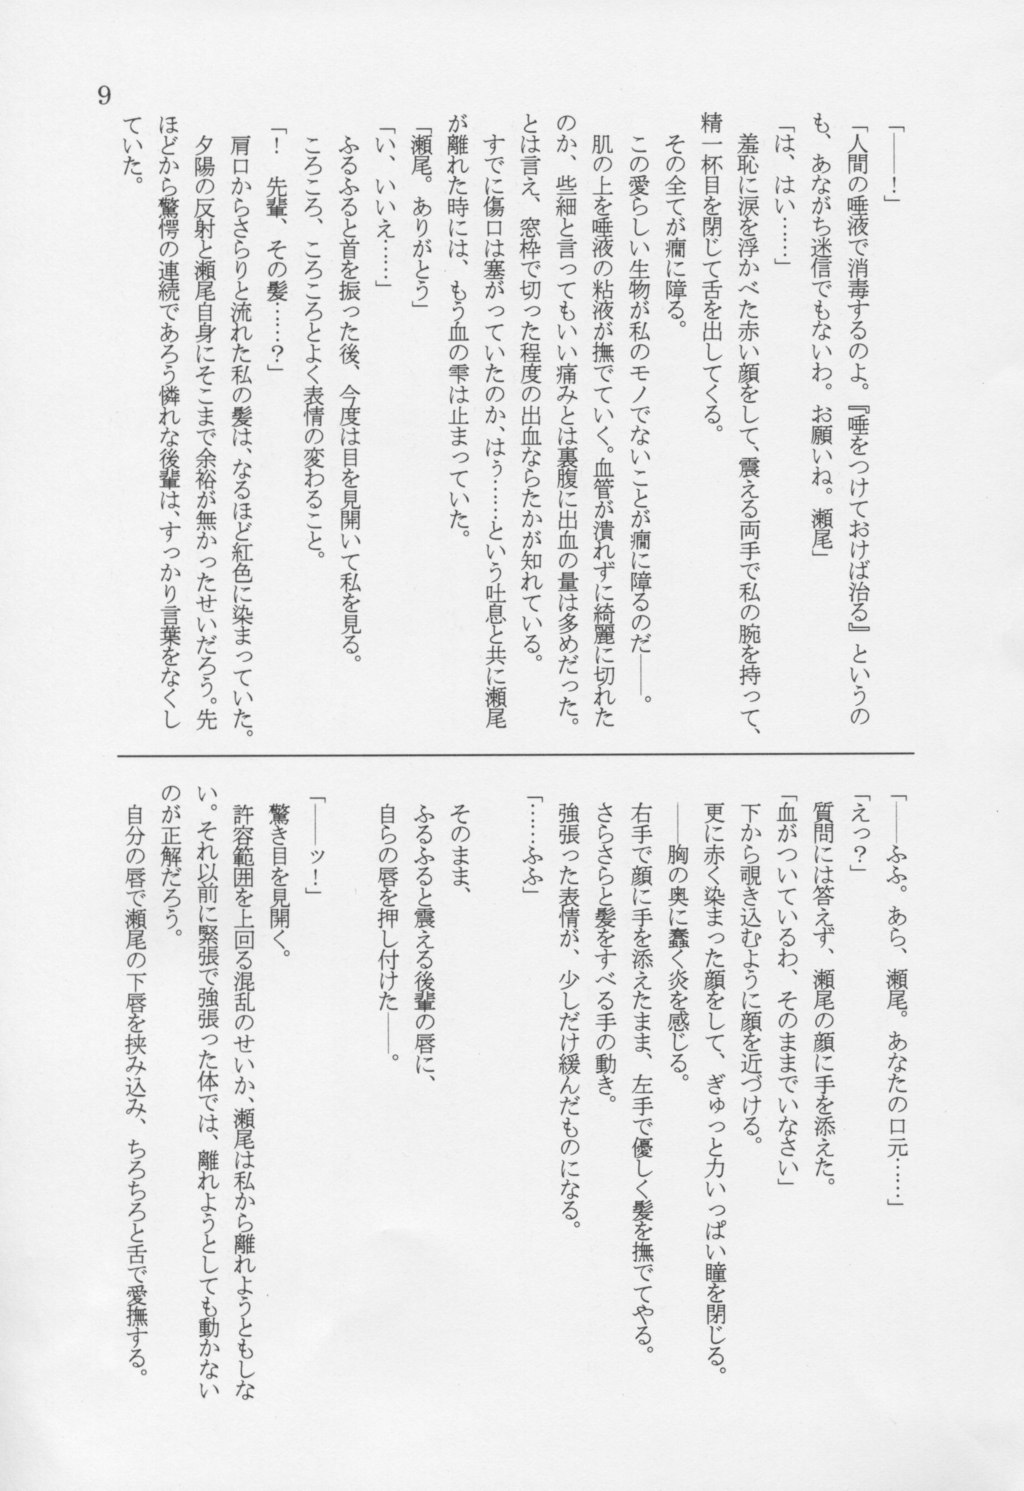 「――！」
「人間の唾液で消毒するのよ。『唾をつけておけば治る』というの
も、あながち迷信でもないわ。お願いね。瀬尾」
「は、はい……」
羞恥に涙を浮かべた赤い顔をして、震える両手で私の腕を持って、
精一杯目を閉じて舌を出してくる。
その全てが癇に障る。
この愛らしい生物が私のモノでないことが癇に障るのだ――。
肌の上を唾液の粘液が撫でていく。血管が潰れずに綺麗に切れた
のか、些細と言ってもいい痛みとは裏腹に出血の量は多めだった。
とは言え、窓枠で切った程度の出血ならたかが知れている。
すでに傷口は塞がっていたのか、はぅ……という吐息と共に瀬尾
が離れた時には、もう血の雫は止まっていた。
「瀬尾。ありがとう」
「い、いいえ……」
ふるふると首を振った後、今度は目を見開いて私を見る。
ころころ、ころころとよく表情の変わること。
「！　先輩、その髪……？」
肩口からさらりと流れた私の髪は、なるほど紅色に染まっていた。
夕陽の反射と瀬尾自身にそこまで余裕が無かったせいだろう。先
ほどから驚愕の連続であろう憐れな後輩は、すっかり言葉をなくし
ていた。
「――ふふ。あら、瀬尾。あなたの口元……」
「えっ？」
質問には答えず、瀬尾の顔に手を添えた。
「血がついているわ、そのままでいなさい」
下から覗き込むように顔を近づける。
更に赤く染まった顔をして、ぎゅっと力いっぱい瞳を閉じる。
――胸の奥に蠢く炎を感じる。
右手で顔に手を添えたまま、左手で優しく髪を撫でてやる。
さらさらと髪をすべる手の動き。
強張った表情が、少しだけ緩んだものになる。
「……ふふ」
そのまま、
ふるふると震える後輩の唇に、
自らの唇を押し付けた――。
「――ッ！」
驚き目を見開く。
許容範囲を上回る混乱のせいか、瀬尾は私から離れようともしな
い。それ以前に緊張で強張った体では、離れようとしても動かない
のが正解だろう。
自分の唇で瀬尾の下唇を挟み込み、ちろちろと舌で愛撫する。
9